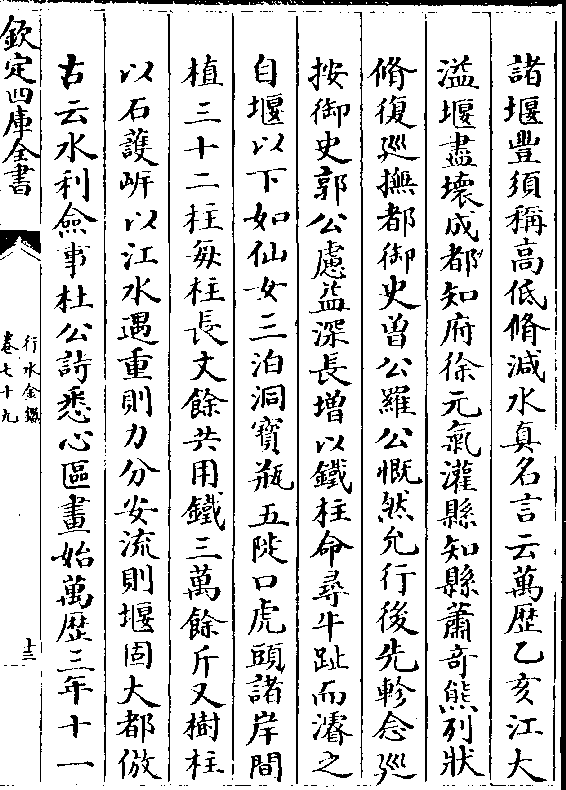 諸堰豐須稱高低脩減水真名言云萬歴乙亥江大
溢堰盡壊成都知府徐元氣灌縣知縣蕭奇熊列狀
脩復廵撫都御史曽公羅公慨然允行後先軫念廵
按御史郭公慮益深長增以鐵柱命尋牛趾而濬之
自堰以下如仙女三泊洞寳瓶五陡口虎頭諸岸間
植三十二柱每柱長丈餘共用鐵三萬餘斤又樹柱
以石䕶㟁以江水遇重則力分安流則堰固大都倣
古云水利僉事杜公詩悉心區畫始萬歴三年十一
欽定四庫全書
行水金鑑
卷七十九
十三